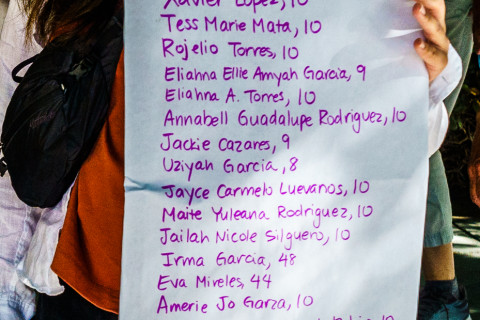 Xavier Lopez, 10
Tess Marie Mata, 10
Rojelio Torres, 10
Eliahna Ellie Amyah Garcia, 9
Eliahna A. Torres, 10
Annabell Guadalupe Rodriguez, 10
Jackie Cazares, 9
Uziyah Garcia, 8
Jayce Carmelo Luevanos, 10
Maite Yuleana Rodriguez, 10
Jailah Nicole Silguero, 10
Irma Garcia, 48
Eva Mireles, 44
Amerie Jo Garza, 10